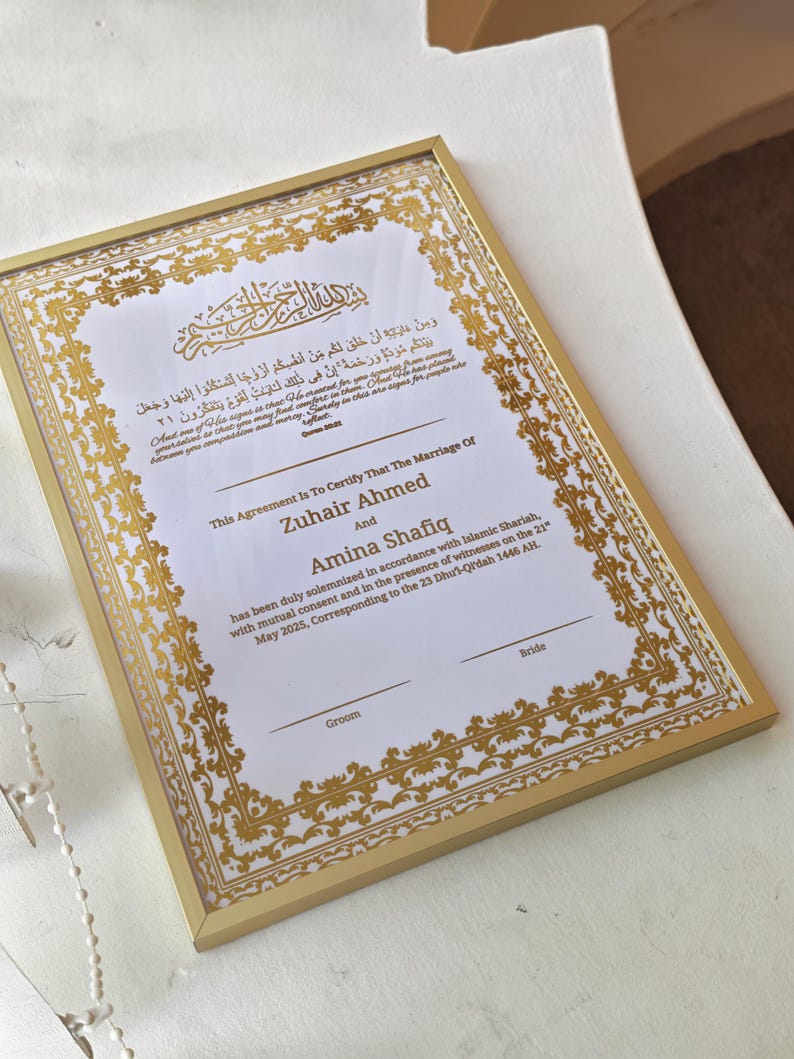 بسم الله الرحمن الرحيم
وَمِنْ ءَايَٰتِهِۦٓ أَنْ خَلَقَ لَكُم مِّنْ أَنفُسِكُمْ أَزْوَٰجًا لِّتَسْكُنُوٓا۟ إِلَيْهَا وَجَعَلَ
بَيْنَكُم مَّوَدَّةً وَرَحْمَةً ۚ إِنَّ فِى ذَٰلِكَ لَءَايَٰتٍ لِّقَوْمٍ يَتَفَكَّرُونَ ٢١
And one of His signs is that He created for you spouses from among
yourselves so that you may find comfort in them. And He has placed
between you compassion and mercy. Surely in this are signs for people who
reflect.
Quran 30:21
This Agreement Is To Certify That The Marriage Of
Zuhair Ahmed
And
Amina Shafiq
has been duly solemnized in accordance with Islamic Shariah,
with mutual consent and in the presence of witnesses on the 21st
May 2025, Corresponding to the 23 Dhu'l-Qi'dah 1446 AH.
Groom
Bride